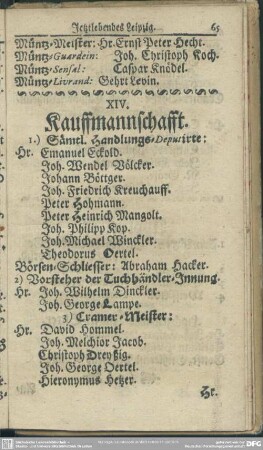 Jetztlebendes Leipzig. 65
Müntz-Meister: Hr. Ernst Peter Hecht.
Müntz-Guardein: Joh. Christoph Koch.
Müntz-Sensal: Caspar Knödel.
Müntz-Livrand: Gehrt Levin.
XIV.
Kauffmannschafft.
1.) Sämtl. Handlungs-Deputirte:
Hr. Emanuel Eckold.
Joh. Wendel Völcker.
Johann Böttger.
Joh. Friedrich Kreuchauff.
Peter Hohmann.
Peter Heinrich Mangolt.
Joh. Philipp Kop.
Joh. Michael Winckler.
Theodorus Oertel.
Börsen-Schliesser: Abraham Hacker.
2) Vorsteher der Tuchhändler-Innung.
Hr. Joh. Wilhelm Dinckler.
Joh. George Lampe.
3) Cramer-Meister:
Hr. David Hommel.
Joh. Melchior Jacob.
Christoph Dreyßig.
Joh. George Oertel.
Hieronymus Hetzer.
Hr.